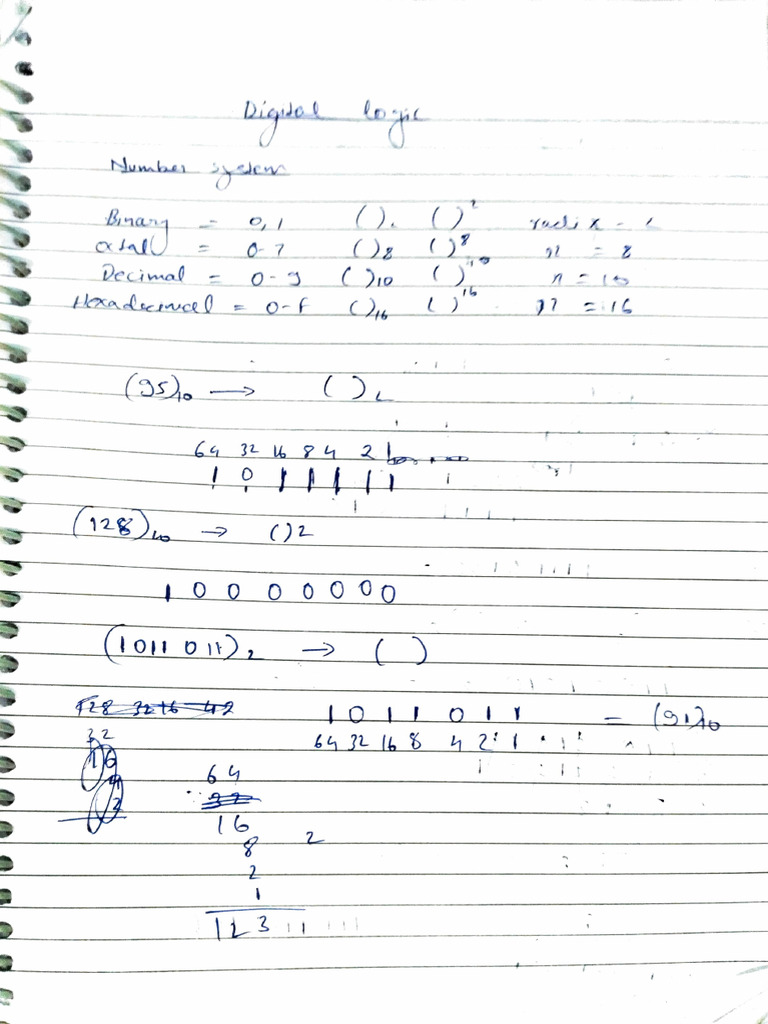 Digital logic
Number system
Binary = 0,1 ( )₂ ( )² radix - 2
octal = 0-7 ( )₈ ( )⁸ n = 8
Decimal = 0-9 ( )₁₀ ( )¹⁰ n = 10
Hexadecimal = 0-F ( )₁₆ ( )¹⁶ n = 16
(95)₁₀ → ( )₂
64 32 16 8 4 2 1
1 0 1 1 1 1 1
(128)₁₀ → ( )2
1 0 0 0 0 0 0 0
(1011 011)₂ → ( )
128 32 16 4 2
1 0 1 1 0 1 1 = (91)₁₀
32
64 32 16 8 4 2 1
16
4
2
64
32
16
8 2
2
1
123